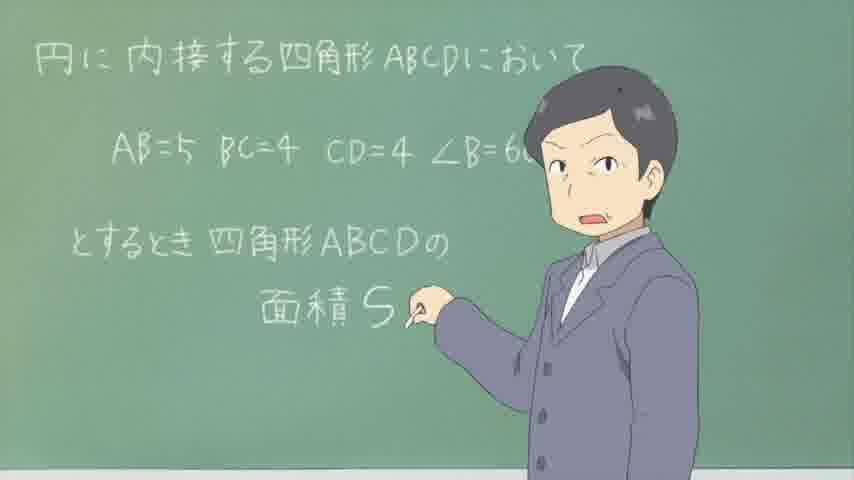 円に内接する四角形ABCDにおいて
AB=5 BC=4 CD=4 ∠B=6
とするとき四角形ABCDの
面積S